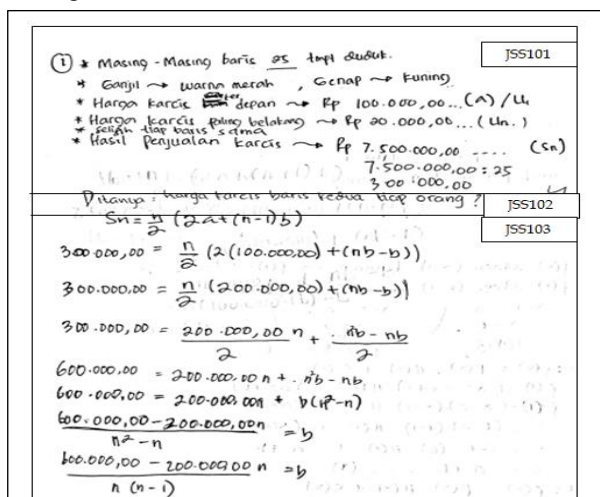 ① * Masing-Masing baris 25 tmpt duduk. JSS101
* Ganjil → warna merah, Genap → kuning
* Harga karcis depan → Rp 100.000,00...(a)/U₁
* Harga karcis paling belakang → Rp 20.000,00...(Un.)
* selisih tiap baris sama
* Hasil Penjualan karcis → Rp 7.500.000,00 .... (Sn)
7.500.000,00 : 25
300.000,00
Ditanya : harga karcis baris kedua tiap orang ? JSS102
Sn = n/2 (2a+(n-1)b) JSS103
300.000,00 = n/2 (2(100.000,00)+(nb-b))
300.000,00 = n/2 (200.000,00)+(nb-b))
300.000,00 = 200.000,00 n/2 + n²b-nb/2
600.000,00 = 200.000,00 n + n²b - nb
600.000,00 = 200.000,00n + b(n²-n)
600.000,00-200.000,00n/n²-n = b
600.000,00 - 200.000,00 n/n(n-1) = b